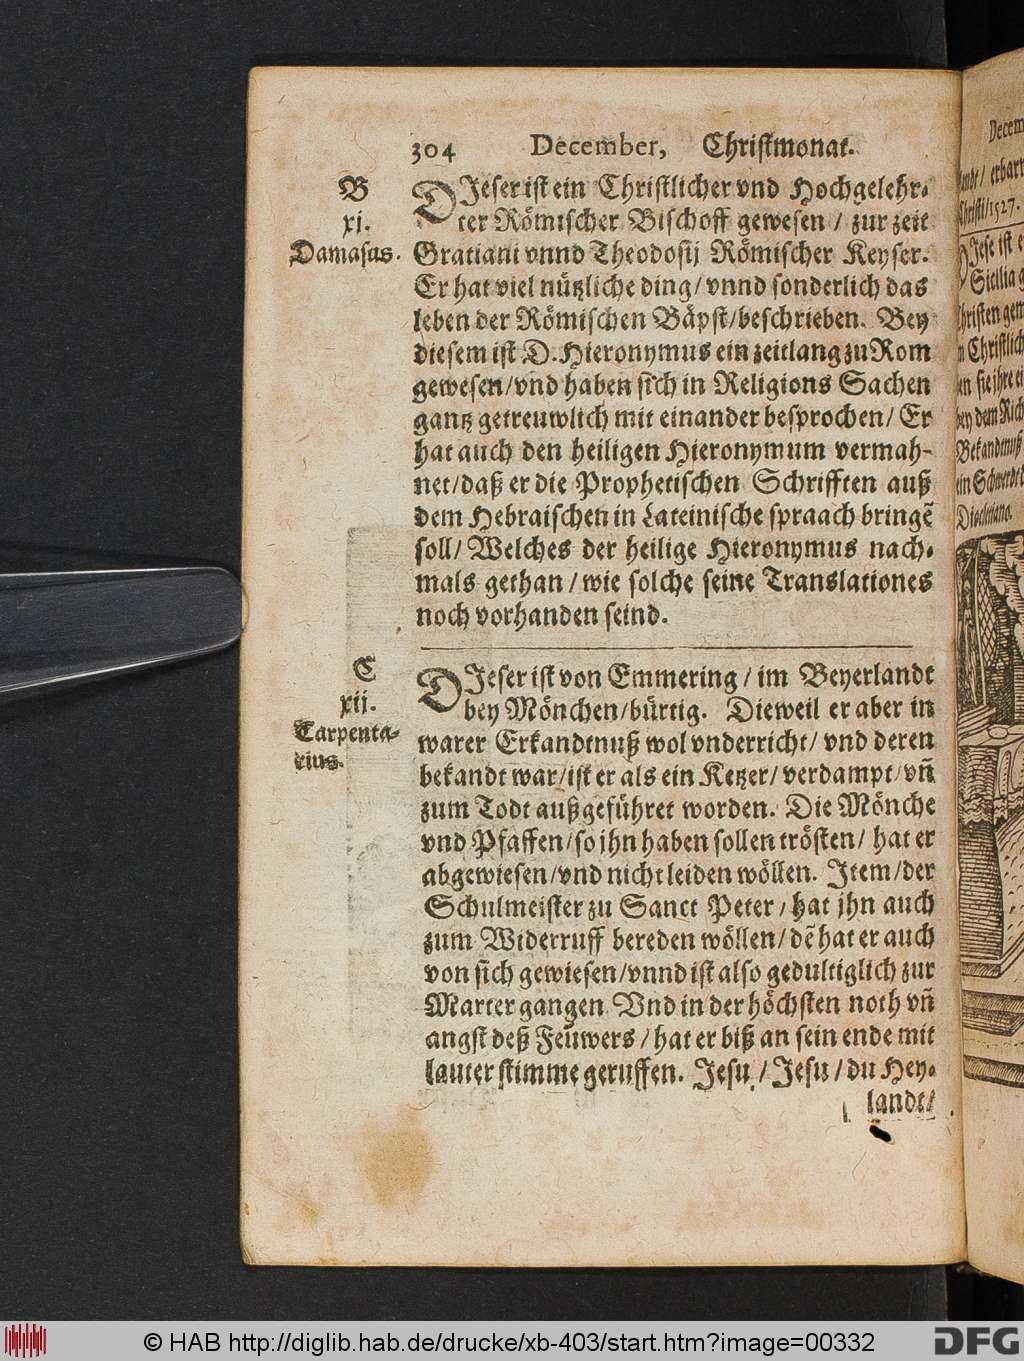 304 December, Christmonat.
B
xj.
Damasus.
DJeser ist ein Christlicher vnd Hochgelehr-
ter Römischer Bischoff gewesen / zur zeit
Gratiani vnnd Theodosij Römischer Keyser.
Er hat viel nützliche ding / vnnd sonderlich das
leben der Römischen Bäpst / beschrieben. Bey
diesem ist D. Hieronymus ein zeitlang zu Rom
gewesen / vnd haben sich in Religions Sachen
gantz getreuwlich mit einander besprochen / Er
hat auch den heiligen Hieronymum vermah-
net / daß er die Prophetischen Schrifften auß
dem Hebraischen in Lateinische spraach bringẽ
soll / Welches der heilige Hieronymus nach-
mals gethan / wie solche seine Translationes
noch vorhanden seind.
C
xij.
Carpenta-
rius.
DJeser ist von Emmering / im Beyerlandt
bey Mönchen / bürtig. Dieweil er aber in
warer Erkandtnuß wol vnderricht / vnd deren
bekandt war / ist er als ein Ketzer / verdampt / vñ
zum Todt außgeführet worden. Die Mönche
vnd Pfaffen / so jhn haben sollen trösten / hat er
abgewiesen / vnd nicht leiden wöllen. Jtem / der
Schulmeister zu Sanct Peter / hat jhn auch
zum Widerruff bereden wöllen / dẽ hat er auch
von sich gewiesen / vnnd ist also gedultiglich zur
Marter gangen Vnd in der höchsten noth vñ
angst deß Feuwers / hat er biß an sein ende mit
lauter stimme geruffen. Jesu / Jesu / du Hey-
landt /
Decem
landt / erbarm
Christi / 1527.
DJese ist e
Sicilia g
Christen gem
n Christlich
en sie jhre ei
bey dem Rich
Bekandtnuß
ein Schwerdt
Diocletiano.
© HAB http://diglib.hab.de/drucke/xb-403/start.htm?image=00332
DFG